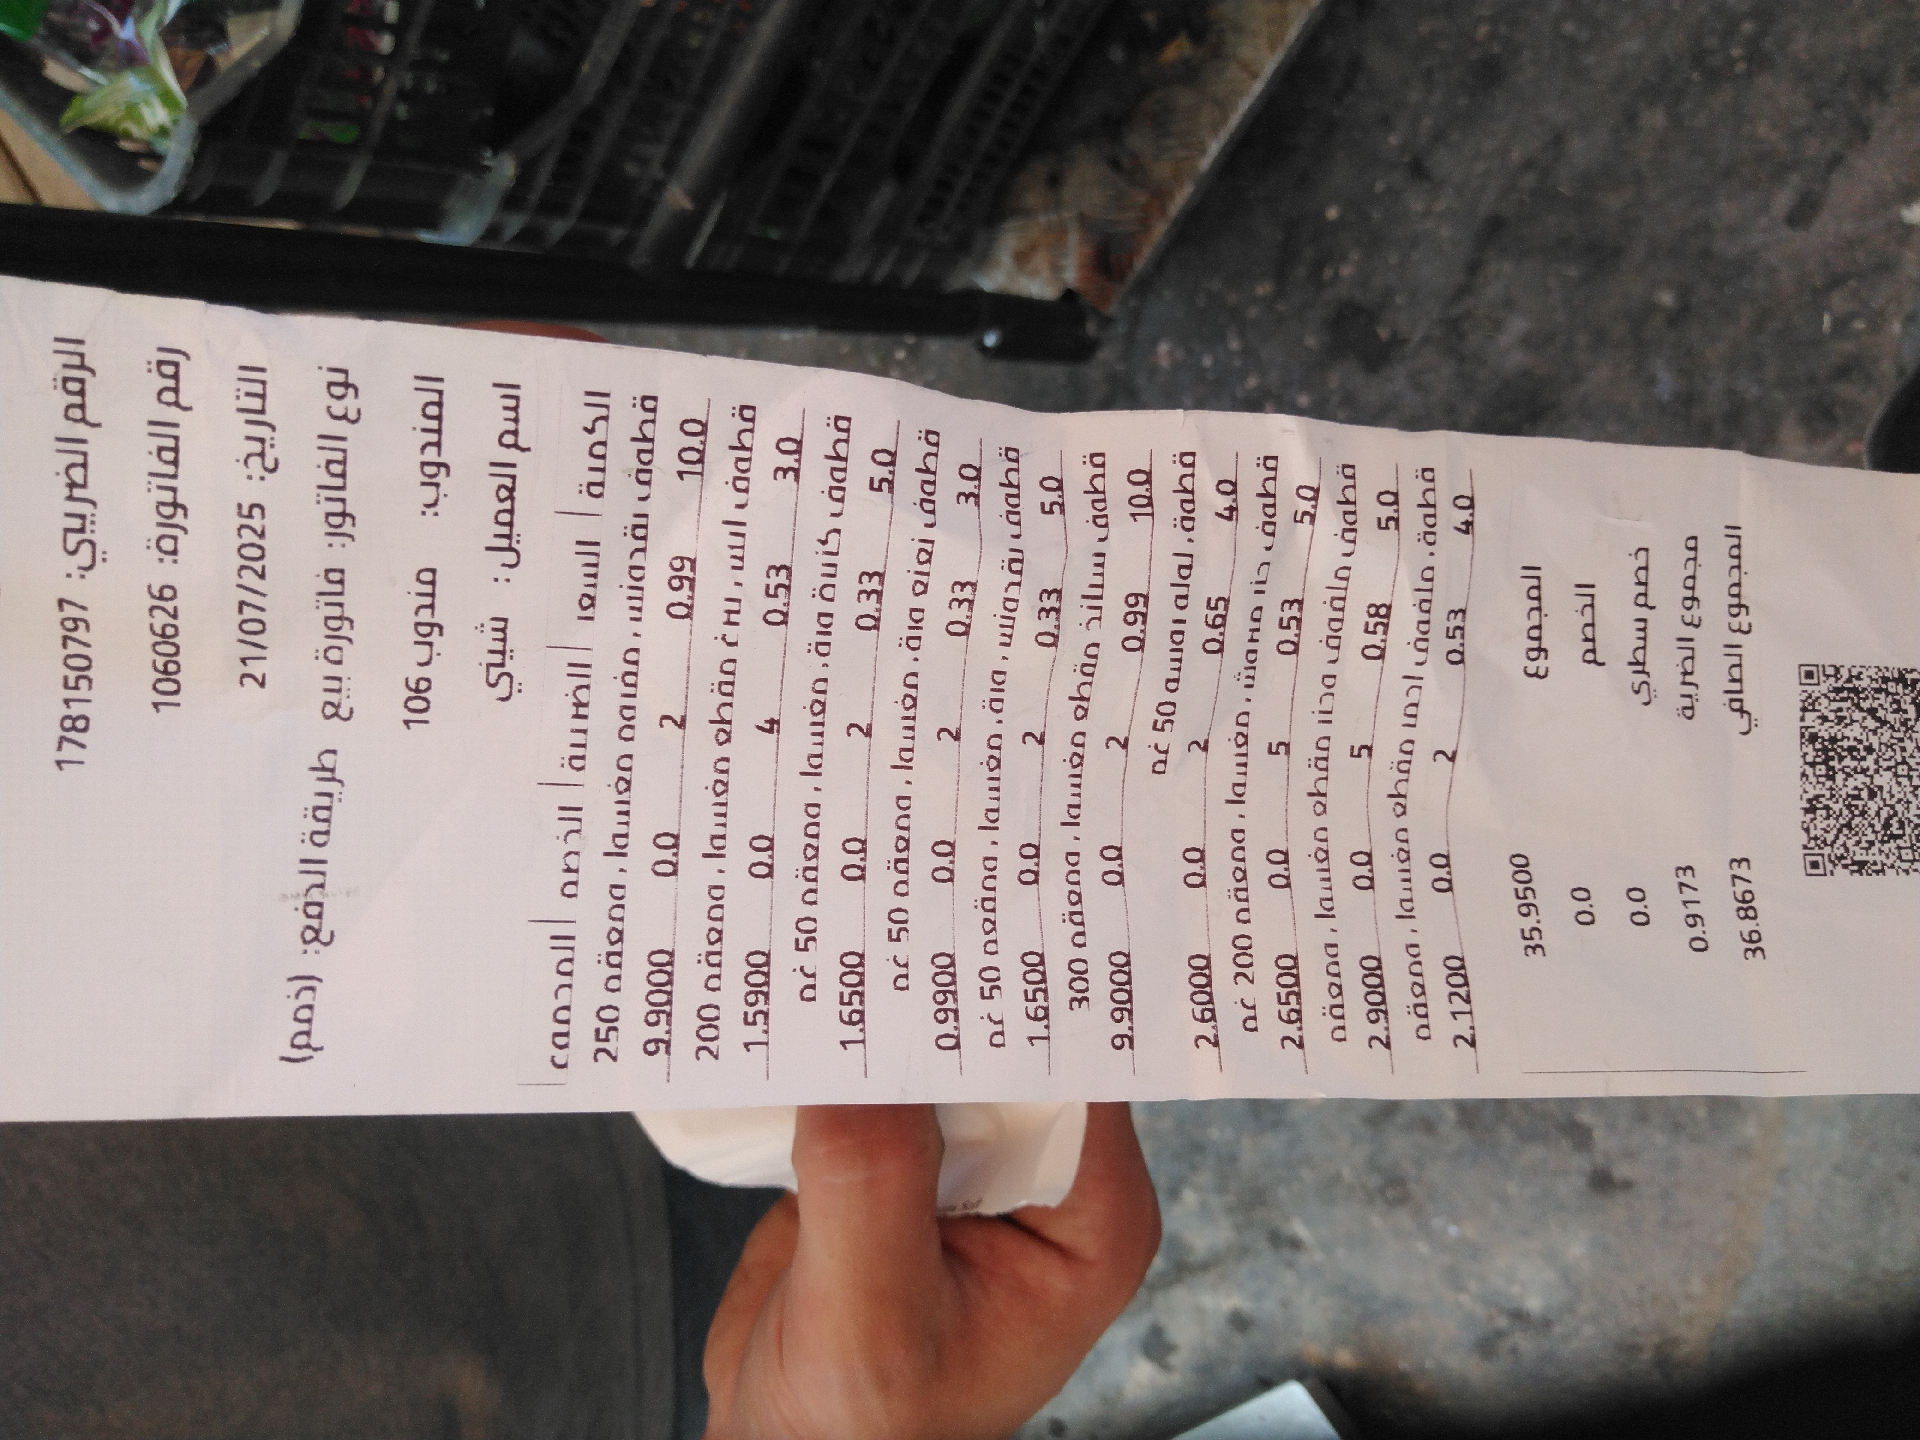 الرقم الضريبي: 178150797
رقم الفاتورة: 1060626
التاريخ: 21/07/2025
نوع الفاتور: فاتورة بيع طريقة الدفع: (ذمم)
المندوب: مندوب 106
اسم العميل: شيني
الكمية | السعر | الضريبة | الخصم | المجموع
قطوف بقدونس مفروم مغسول ومعقم 250
10.0 0.99 2 0.0 9.9000
قطوف مقطع مغسول ومعقم 200
3.0 0.53 4 0.0 1.5900
قطوف كزبرة ورق مغسول ومعقم 50 غم
5.0 0.33 2 0.0 1.6500
قطوف نعنع ورق مغسول ومعقم 50 غم
3.0 0.33 2 0.0 0.9900
قطوف بقدونس ورق مغسول ومعقم 50 غم
5.0 0.33 2 0.0 1.6500
قطوف مقطع مغسول ومعقم 300
10.0 0.99 2 0.0 9.9000
قطوف 50 غم
4.0 0.65 2 0.0 2.6000
قطوف مغسول ومعقم 200 غم
5.0 0.53 5 0.0 2.6500
قطوف ملفوف مقطع مغسول ومعقم
5.0 0.58 5 0.0 2.9000
قطوف ملفوف احمر مقطع مغسول ومعقم
4.0 0.53 2 0.0 2.1200
المجموع 35.9500
الخصم 0.0
خصم سطري 0.0
مجموع الضريبة 0.9173
المجموع الصافي 36.8673